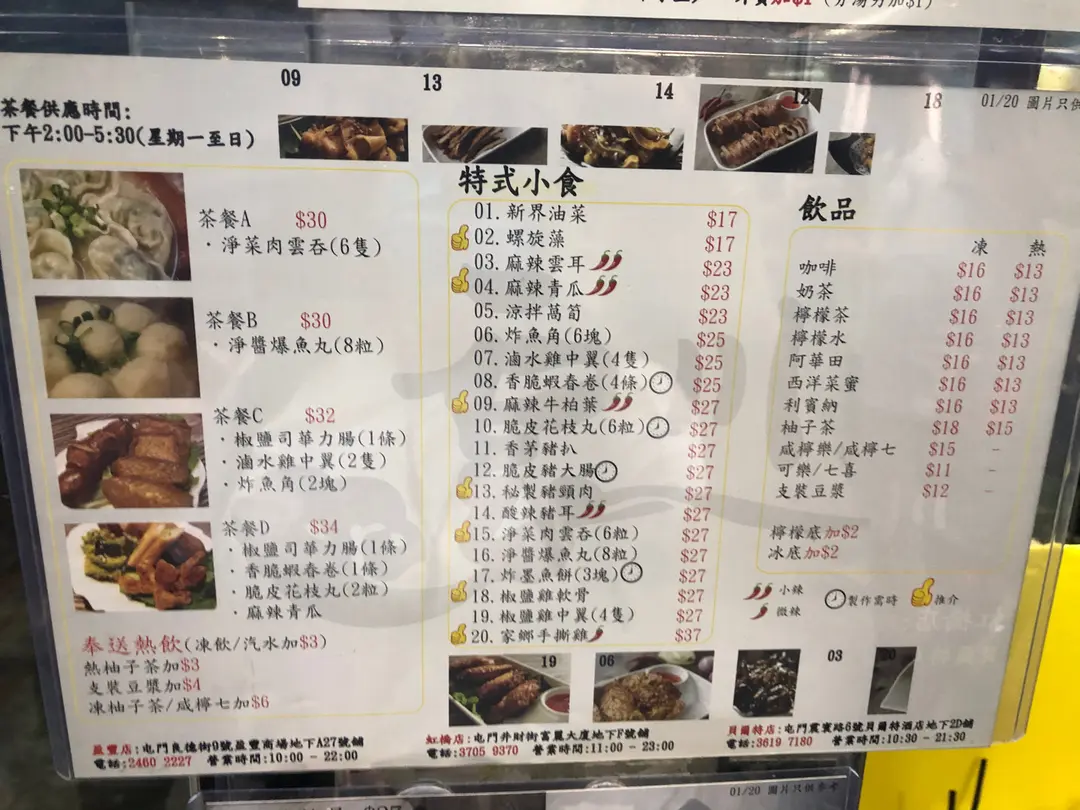 加$1
09
13
14
12
18
01/20 圖片只供
茶餐供應時間:
下午2:00-5:30(星期一至日)
茶餐A $30
·淨菜肉雲吞(6隻)
茶餐B $30
·淨醬爆魚丸(8粒)
茶餐C $32
·椒鹽司華力腸(1條)
·滷水雞中翼(2隻)
·炸魚角(2塊)
茶餐D $34
·椒鹽司華力腸(1條)
·香脆蝦春卷(1條)
·脆皮花枝丸(2粒)
·麻辣青瓜
奉送熱飲(凍飲/汽水加$3)
熱柚子茶加$3
支裝豆漿加$4
凍柚子茶/咸檸七加$6
特式小食
01. 新界油菜 $17
02. 螺旋藻 $17
03. 麻辣雲耳 $23
04. 麻辣青瓜 $23
05. 涼拌萵筍 $23
06. 炸魚角(6塊) $25
07. 滷水雞中翼(4隻) $25
08. 香脆蝦春卷(4條) $25
09. 麻辣牛柏葉 $27
10. 脆皮花枝丸(6粒) $27
11. 香茅豬扒 $27
12. 脆皮豬大腸 $27
13. 秘製豬頸肉 $27
14. 酸辣豬耳 $27
15. 淨菜肉雲吞(6粒) $27
16. 淨醬爆魚丸(8粒) $27
17. 炸墨魚餅(3塊) $27
18. 椒鹽雞軟骨 $27
19. 椒鹽雞中翼(4隻) $27
20. 家鄉手撕雞 $37
飲品
凍 熱
咖啡 $16 $13
奶茶 $16 $13
檸檬茶 $16 $13
檸檬水 $16 $13
阿華田 $16 $13
西洋菜蜜 $16 $13
利賓納 $16 $13
柚子茶 $18 $15
咸檸樂/咸檸七 $15 -
可樂/七喜 $11 -
支裝豆漿 $12 -
檸檬底加$2
冰底加$2
小辣
微辣
製作需時
推介
19
06
03
20
盈豐店:屯門良德街9號盈豐商場地下A27號舖
電話:2460 2227 營業時間:10:00 - 22:00
虹橋店:屯門井財街富麗大廈地下F號舖
電話:3705 9370 營業時間:11:00 - 23:00
貝爾特店:屯門震寰路6號貝爾特酒店地下2D舖
電話:3619 7180 營業時間:10:30 - 21:30
01/20 圖片只供參考